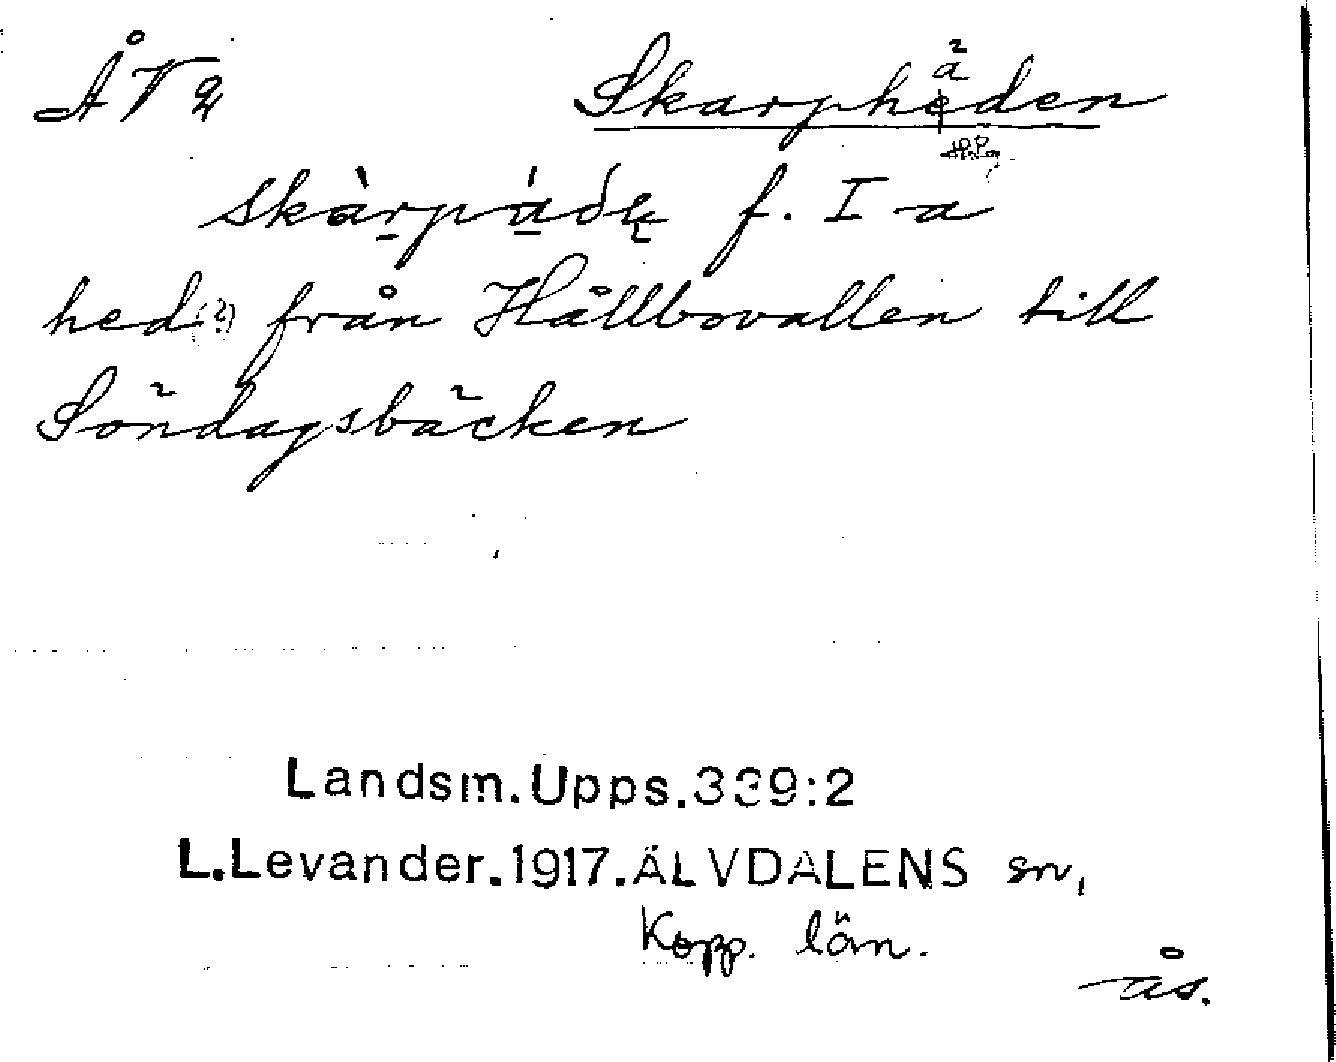 Å V 2 Skarphäden
skàrpádę f. I a
hed (?) från Hållbovallen till
Söndagsbäcken
Landsm.Upps.339:2
L.Levander.1917.ÄLVDALENS sn,
Kopp. län.
ås.